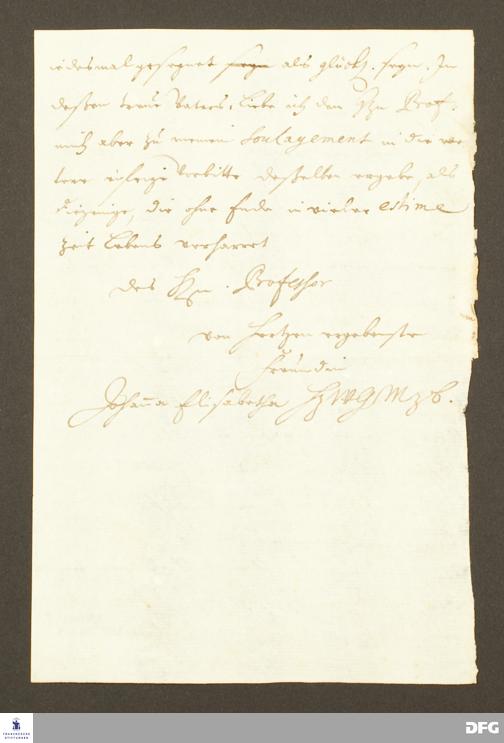 iedesmal gesegnet seyn als glückl. seyn. In
deßen treue Vaters, Liebe ich den Hn Prof.
mich aber zu meinem Soulagement in die
tere eifrige Vorbitte deßelben ergebe, als
diejenige, die ohne Ende in vieler estime
Zeit Lebens verharret
des Hn. Professor
von Hertzen ergebenste
Freundin
Johanna Elisabetha HZWGMZB.
FRANCKESCHE
STIFTUNGEN
DFG